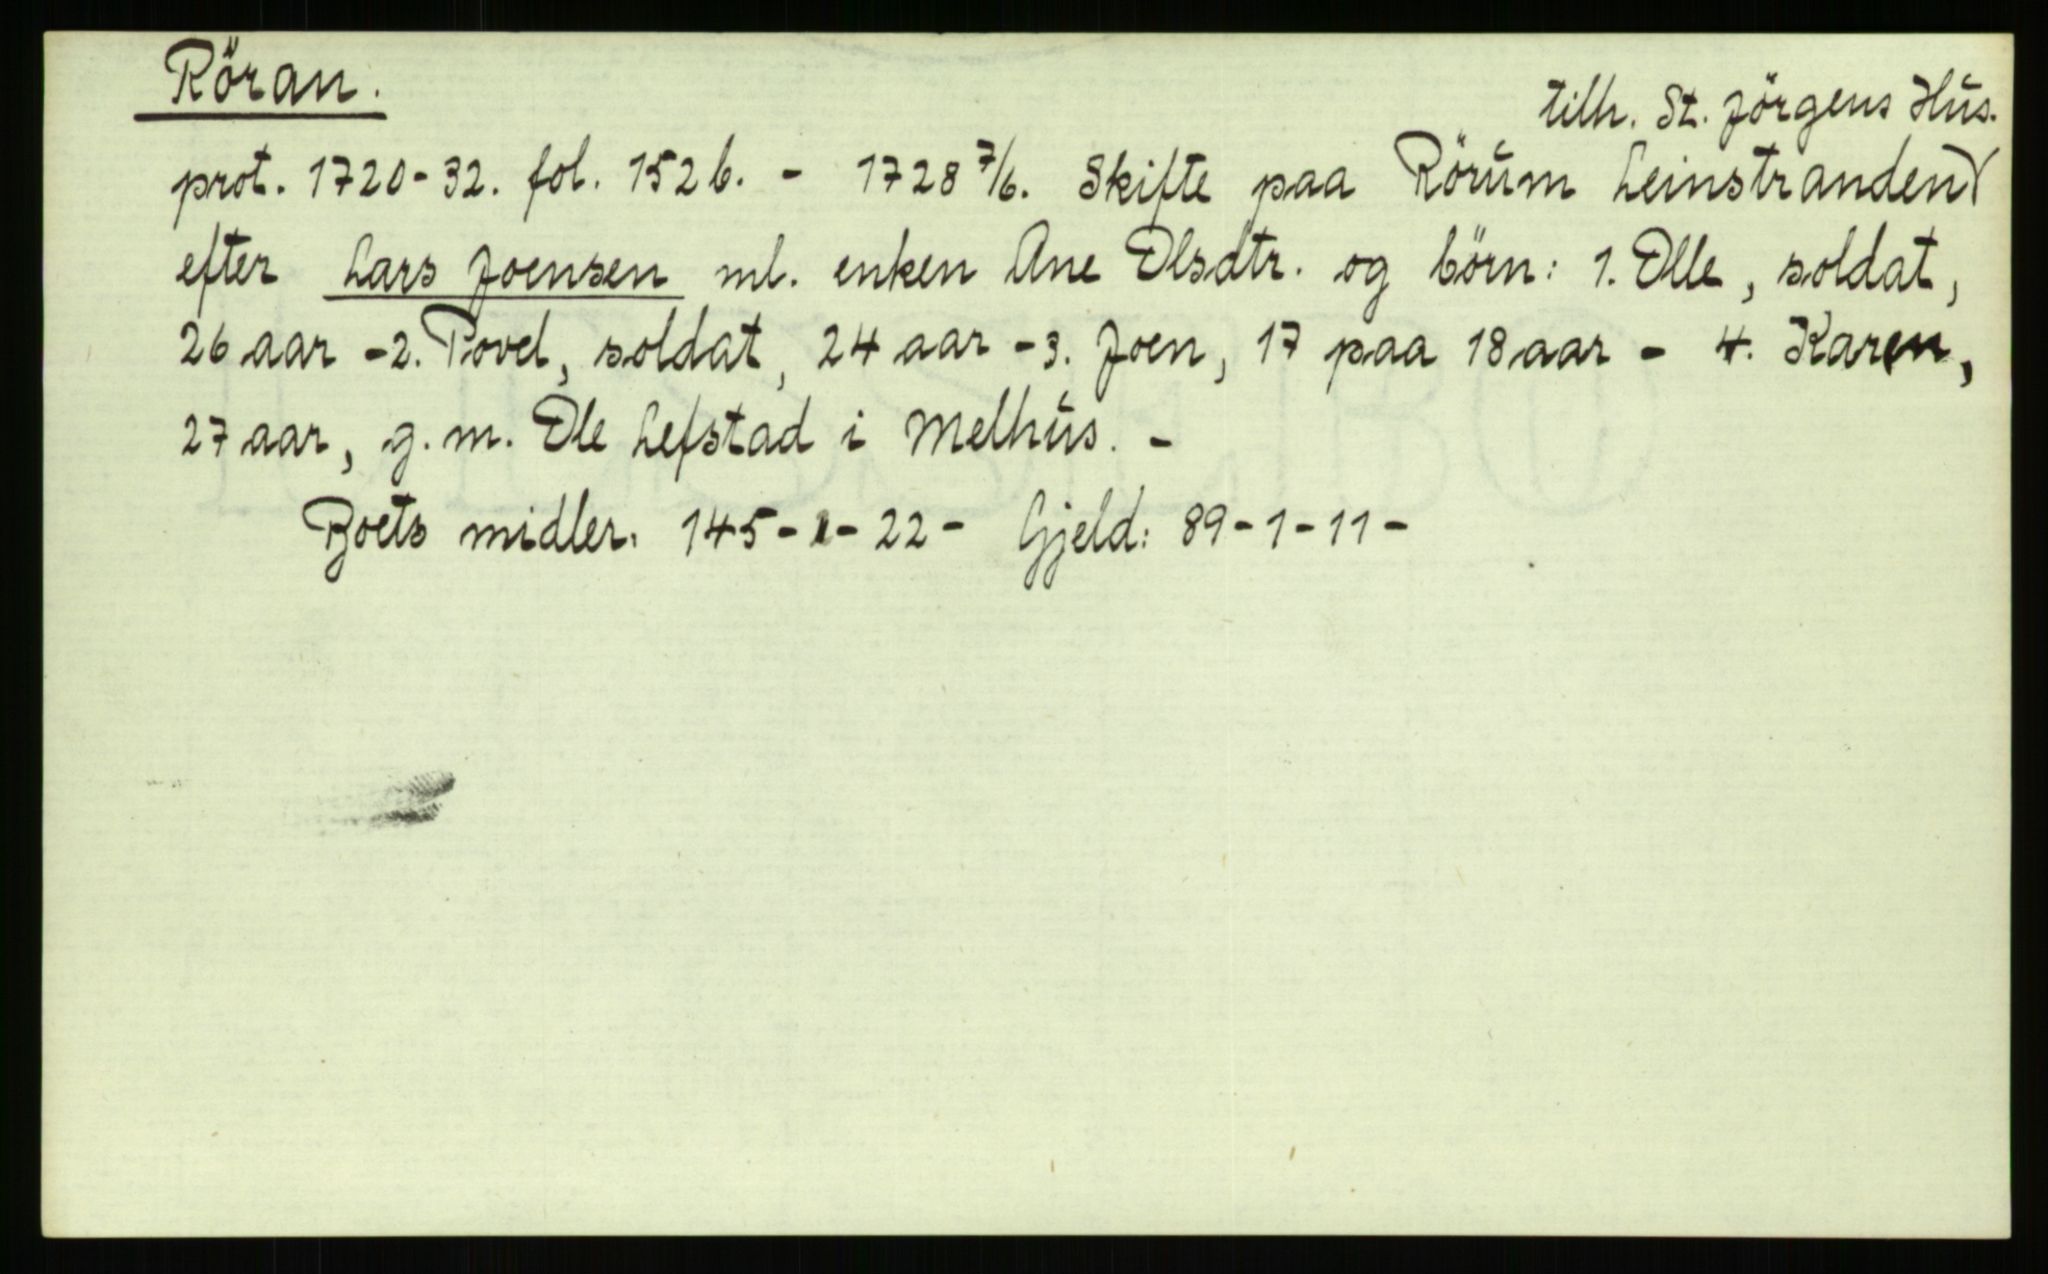 Röran.
tilh. St. Jörgens Hus.
prot. 1720-32. fol. 152 b. - 1728 7/6. Skifte paa Rörum Leinstranden
efter Lars Joensen ml. enken Ane Olsdtr. og börn: 1. Olle, soldat,
26 aar - 2. Povel, soldat, 24 aar - 3. Joen, 17 paa 18 aar - 4. Karen,
27 aar, g. m. Ole Lefstad i Melhus. -
Boets midler. 145 - 1 - 22 - Gjeld: 89 - 1 - 11 -